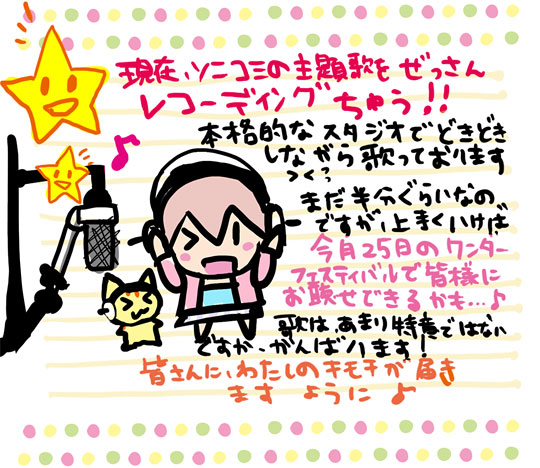 現在、ソニコミの主題歌をぜっさん
レコーディングちゅう!!
本格的なスタジオでどきどき
しながら歌っております
つくっ
まだ半分ぐらいなの
ですが、上手くいけば
今月25日のワンダー
フェスティバルで皆様に
お聴せできるかも…♪
歌は、あまり特意ではない
ですが、がんばります!
皆さんに、わたしのキモチが届き
ますように♪